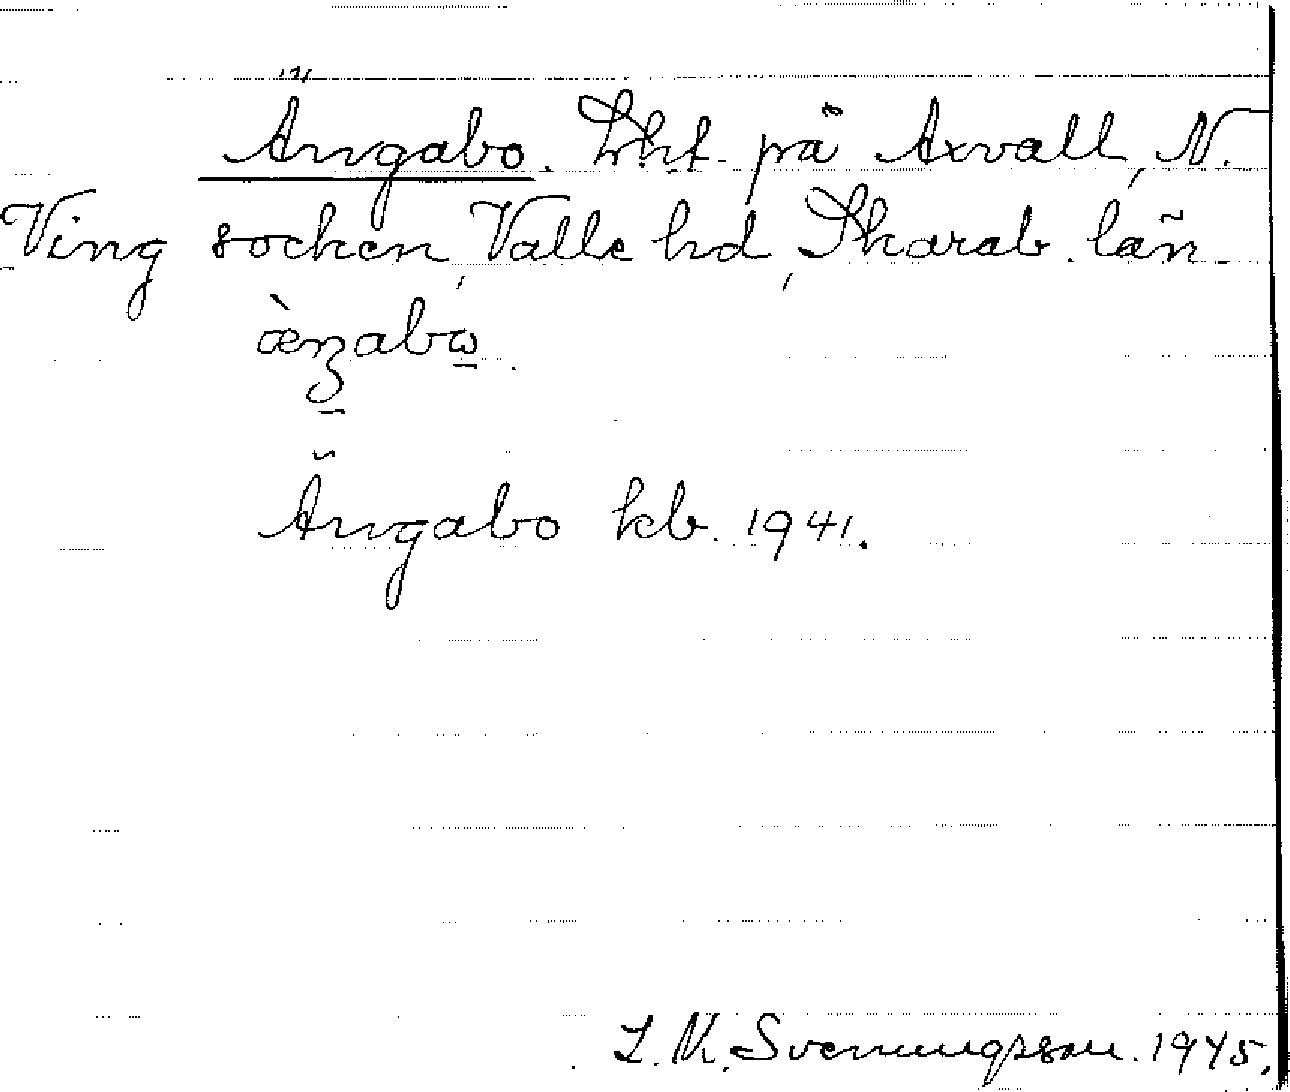 Ängabo. Lht. på Axvall, N.
Ving socken, Valle hd, Skarab. län
æ̀ŋabω̱.
Ängabo kb. 1941.
Svenungsson. 1945.